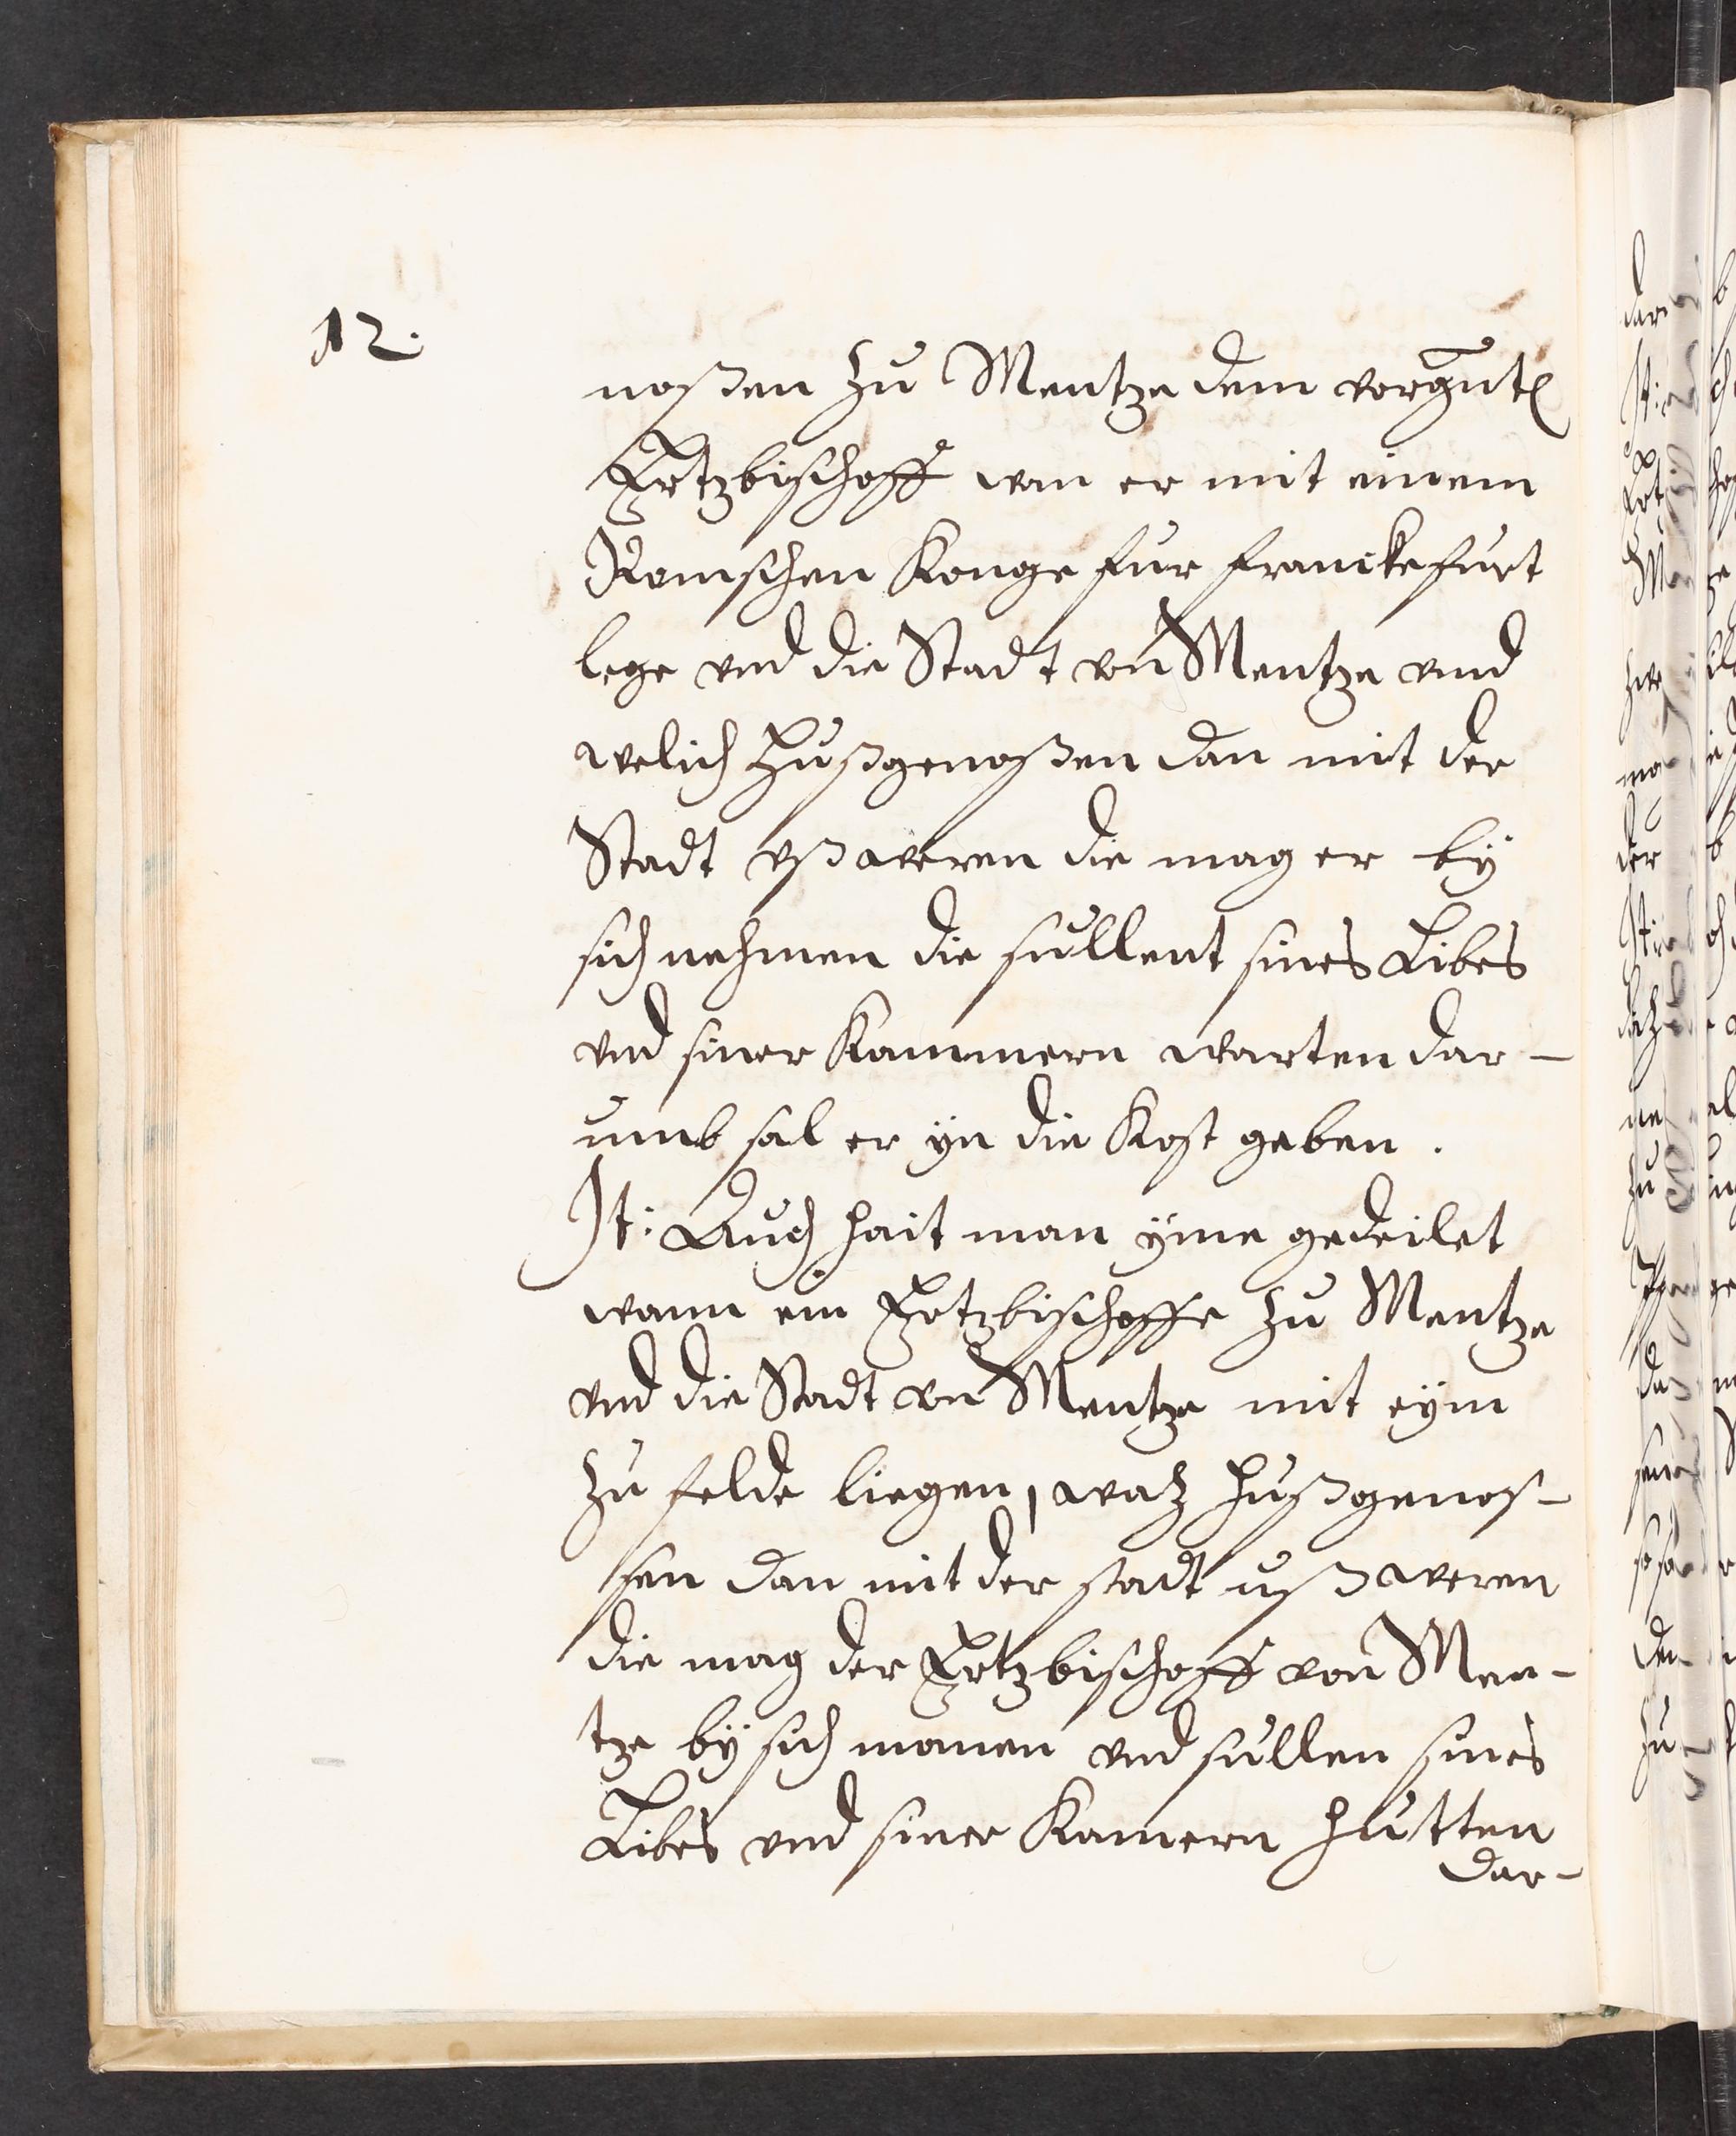 12.
noßen zu Mentze dem vorgnt
Ertzbischoff wan er mit einem
Romschen Konge fur franckefurt
lege vnd die Stadt von Mentze vnd
welich Hußgenoßen dan mit der
Stadt vß weren die mag er by
sich nehmen die sullent sines Libes
vnd siner Kammern warten dar-
umb sal er yn die Kost geben.
It: Auch hait man yme gedeilet
wann ein Ertzbischoffe zu Mentze
vnd die Stadt von Mentze mit eym
zu felde liegen, watz hußgenos-
sen dan mit der stadt uß weren
die mag der Ertzbischoff von Men-
tze by sich manen vnd sullen sines
Libes vnd siner Kamern hutten
dar-